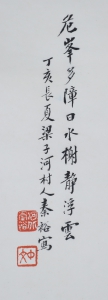 危峯多障日水樹靜浮雲
丁亥長夏梁子河村人秦裕寫